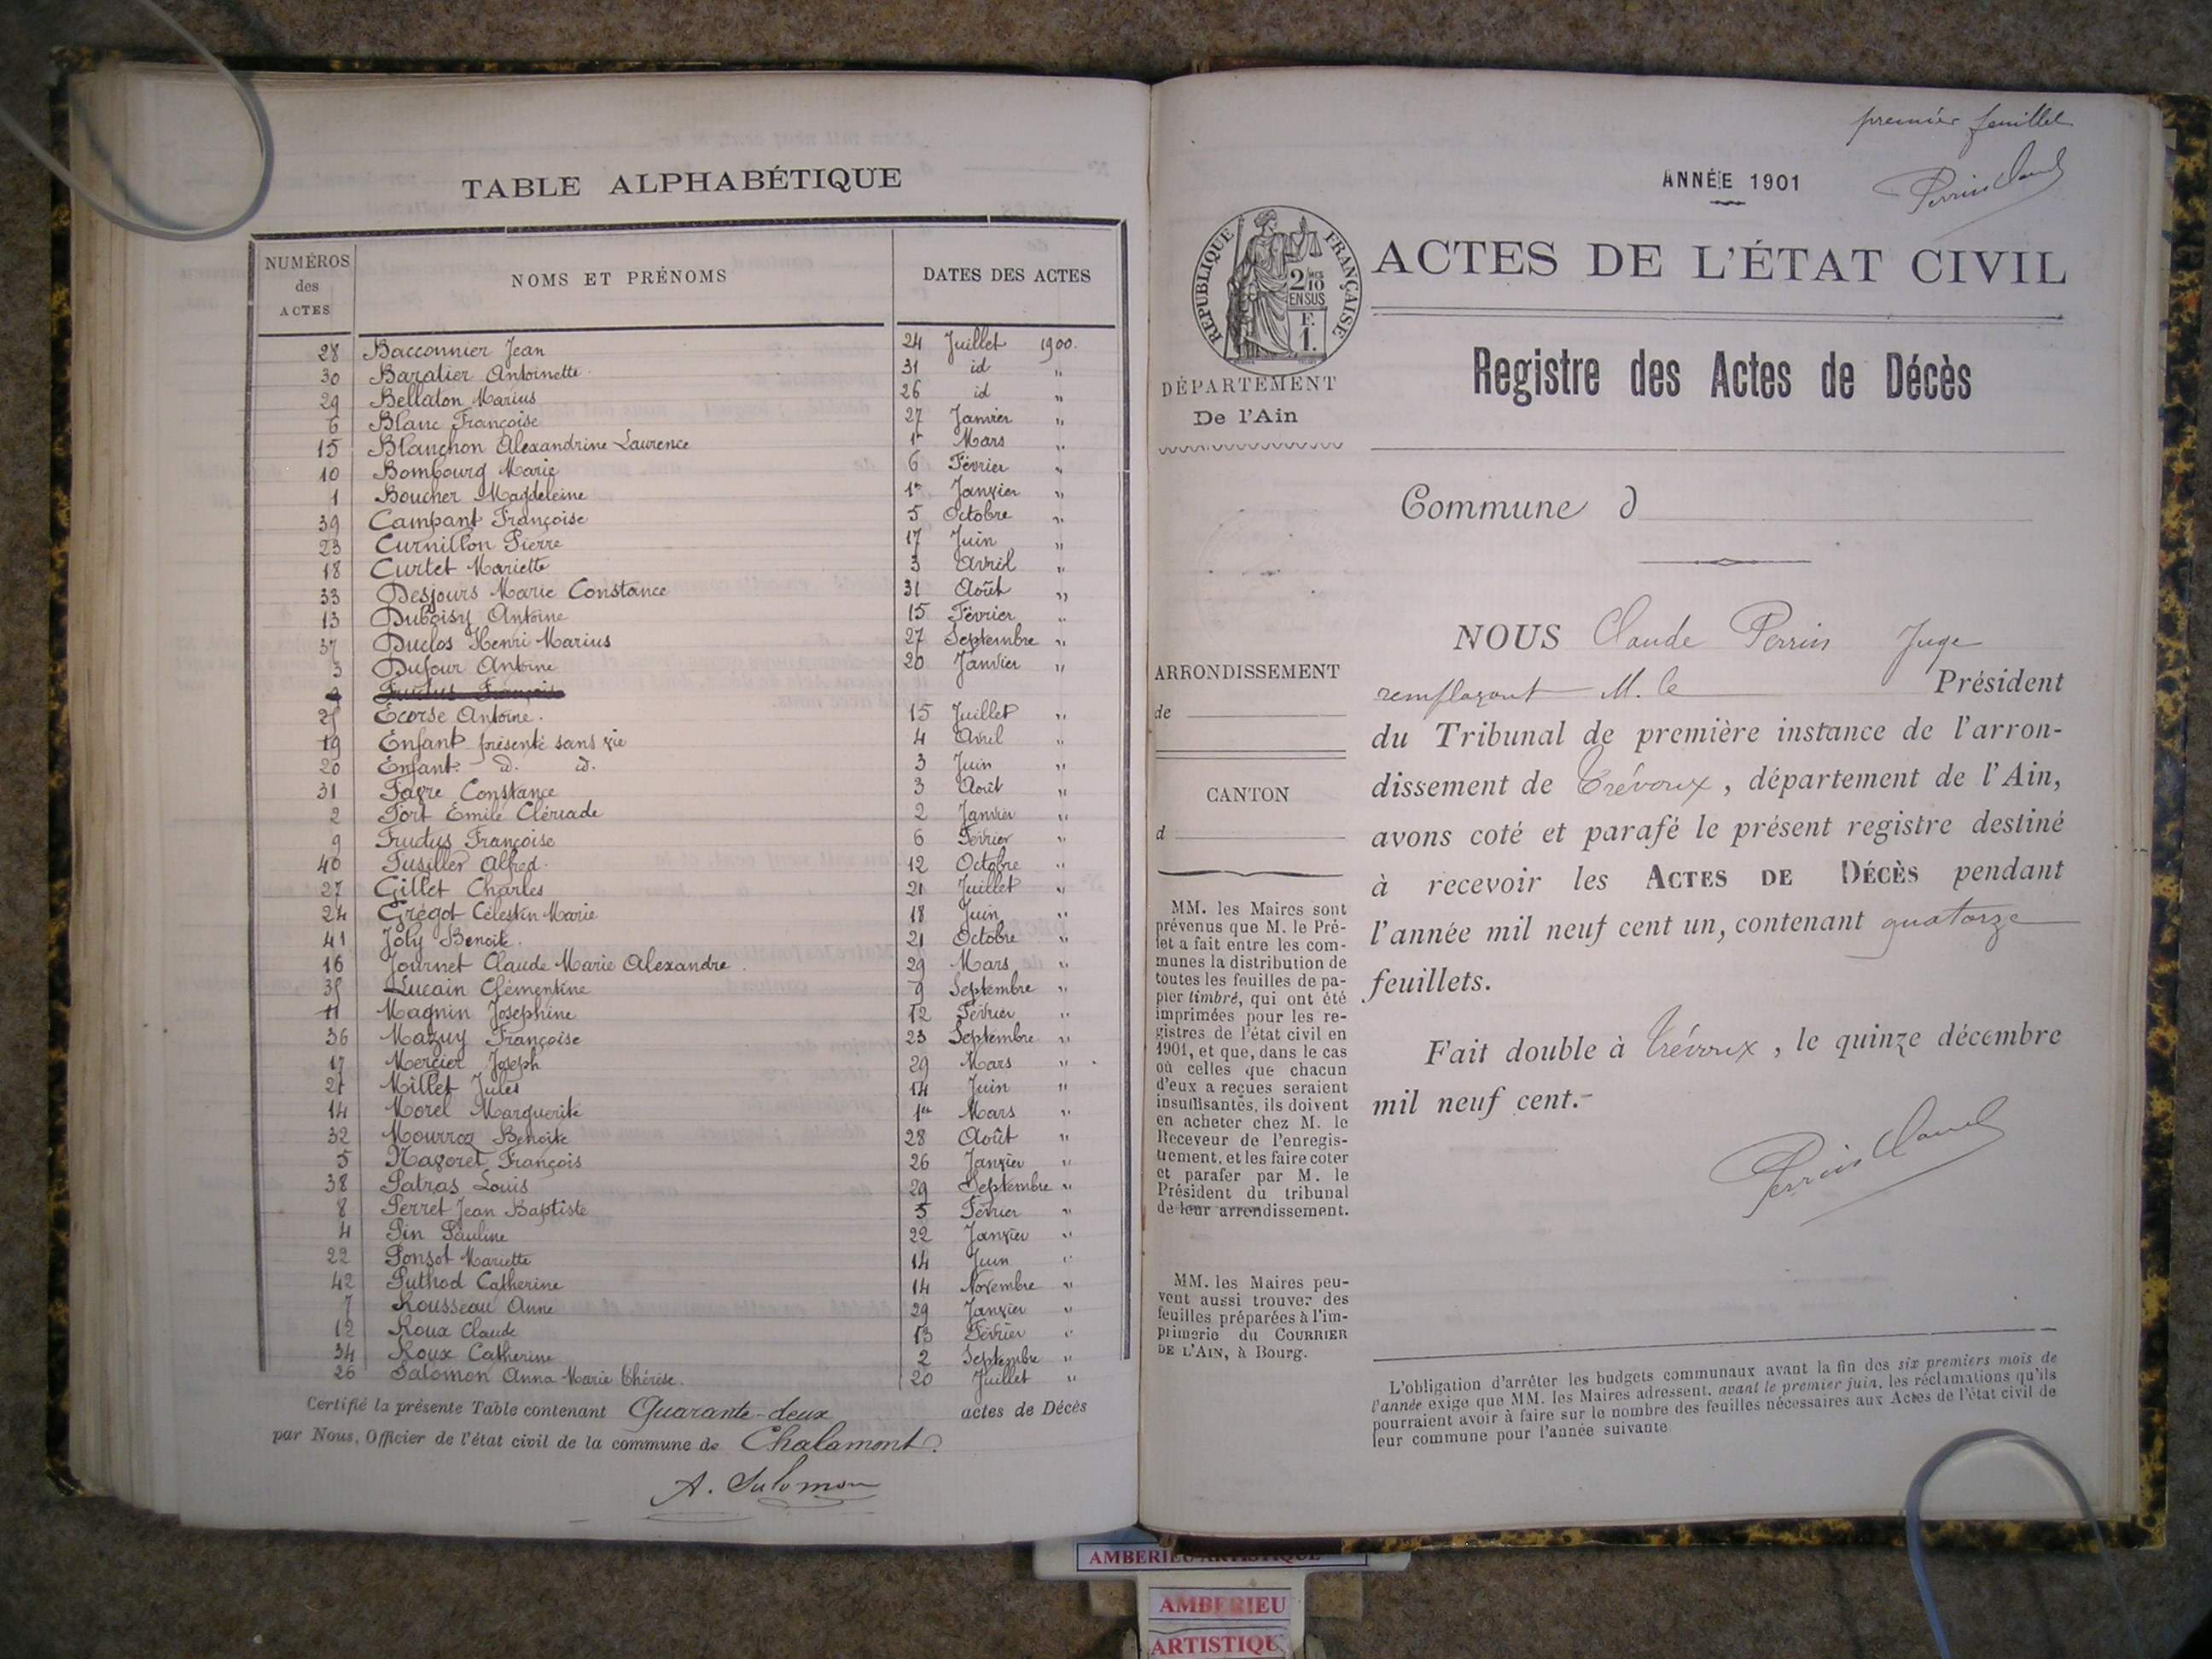 TABLE ALPHABÉTIQUE
NUMÉROS des ACTES NOMS ET PRÉNOMS DATES DES ACTES
28 Bacconnier Jean 24 Juillet 1900.
30 Baratier Antoinette 31 id "
29 Bellaton Marius 26 id "
6 Blanc Françoise 27 Janvier "
15 Blanchon Alexandrine Laurence 1er Mars "
10 Bombourg Marie 6 Février "
1 Boucher Magdeleine 1er Janvier "
39 Campant Françoise 5 Octobre "
23 Curnillon Pierre 17 Juin "
18 Curtet Mariette 3 Avril "
33 Desjours Marie Constance 31 Août "
13 Duboisy Antoine 15 Février "
37 Duclos Henri Marius 27 Septembre "
3 Dufour Antoine 20 Janvier "
9 Frudus Françoise
25 Écorse Antoine. 15 Juillet "
19 Enfant présenté sans vie 4 Avril "
20 Enfant. d. id. 3 Juin "
31 Favre Constance 3 Août "
2 Fort Emile Clériade 2 Janvier "
9 Frudus Françoise 6 Février "
40 Fusillier Alfred. 12 Octobre "
27 Gillet Charles 21 Juillet "
24 Grégot Célestin Marie 18 Juin "
41 Joly Benoite. 21 Octobre "
16 Journet Claude Marie Alexandre. 29 Mars "
35 Lucain Clémentine 9 Septembre "
11 Magnin Josephine 12 Février "
36 Mazuy Françoise 23 Septembre "
17 Mercier Joseph 29 Mars "
21 Millet Jules 14 Juin "
14 Morel Marguerite 1er Mars "
32 Mourroz Benoite 28 Août "
5 Navoret François 26 Janvier "
38 Patras Louis 29 Septembre "
8 Perret Jean Baptiste 5 Février "
4 Pin Pauline 22 Janvier "
22 Ponsot Mariette 14 Juin "
42 Puthod Catherine 14 Novembre "
7 Rousseau Anne 29 Janvier "
12 Roux Claude 13 Février "
34 Roux Catherine 2 Septembre "
26 Salomon Anna Marie Thérèse. 20 Juillet "
Certifié la présente Table contenant Quarante-deux actes de Décès
par Nous, Officier de l'état civil de la commune de Chalamont.
A. Salomon
premier feuillet
Perrin Claude
ANNÉE 1901
ACTES DE L'ÉTAT CIVIL
RÉPUBLIQUE FRANÇAISE
2/10 MES
EN SUS
F. 1.
DÉPARTEMENT
De l'Ain
Registre des Actes de Décès
Commune d
ARRONDISSEMENT
de
CANTON
d
MM. les Maires sont
prévenus que M. le Pré-
fet a fait entre les com-
munes la distribution de
toutes les feuilles de pa-
pier timbré, qui ont été
imprimées pour les re-
gistres de l'état civil en
1901, et que, dans le cas
où celles que chacun
d'eux a reçues seraient
insuffisantes, ils doivent
en acheter chez M. le
Receveur de l'enregis-
trement, et les faire coter
et parafer par M. le
Président du tribunal
de leur arrondissement.
MM. les Maires peu-
vent aussi trouver des
feuilles préparées à l'im-
primerie du COURRIER
DE L'AIN, à Bourg.
NOUS Claude Perrin Juge
remplaçant M. le Président
du Tribunal de première instance de l'arron-
dissement de Trévoux, département de l'Ain,
avons coté et parafé le présent registre destiné
à recevoir les ACTES DE DÉCÈS pendant
l'année mil neuf cent un, contenant quatorze
feuillets.
Fait double à Trévoux, le quinze décembre
mil neuf cent.-
Perrin Claude
L'obligation d'arrêter les budgets communaux avant la fin des six premiers mois de
l'année exige que MM. les Maires adressent, avant le premier juin, les réclamations qu'ils
pourraient avoir à faire sur le nombre des feuilles nécessaires aux Actes de l'état civil de
leur commune pour l'année suivante.
AMBERIEU ARTISTIQUE
AMBERIEU
ARTISTIQU